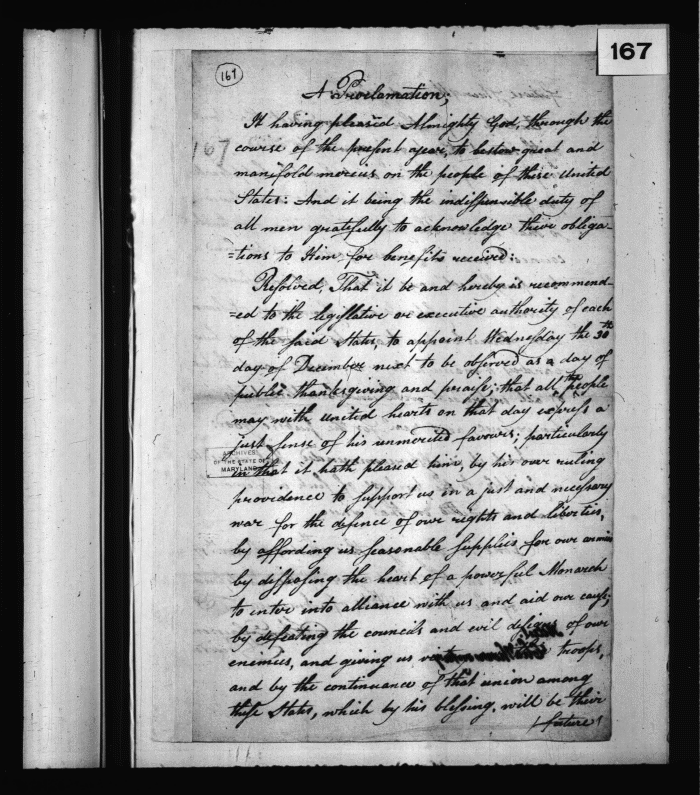 167
167
A Proclamation,
It having pleased Almighty God, through the
course of the present year, to bestow great and
manifold mercies on the people of these United
States: And it being the indispensible duty of
all men gratefully to acknowledge their obliga-
=tions to Him for benefits received:
Resolved, That it be and hereby is recommend-
=ed to the legislative or executive authority of each
of the said States, to appoint Wednesday the 30th
day of December next to be observed as a day of
public thanksgiving and praise; that all the people
may with united hearts on that day express a
just sense of his unmerited favours; particularly
in that it hath pleased him, by his over ruling
providence to support us in a just and necessary
war for the defence of our rights and liberties,
by affording us seasonable supplies for our armies
by disposing the heart of a powerful Monarch
to enter into alliance with us and aid our cause;
by defeating the councils and evil designs of our
enemies, and giving us troops,
and by the continuance of that union among
these States, which by his blessing, will be their
future
ARCHIVES
OF THE STATE OF
MARYLAND
167